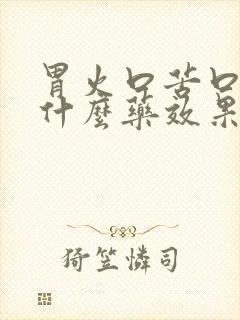 胃火口苦口
什麼藥效果
猗笠憐司